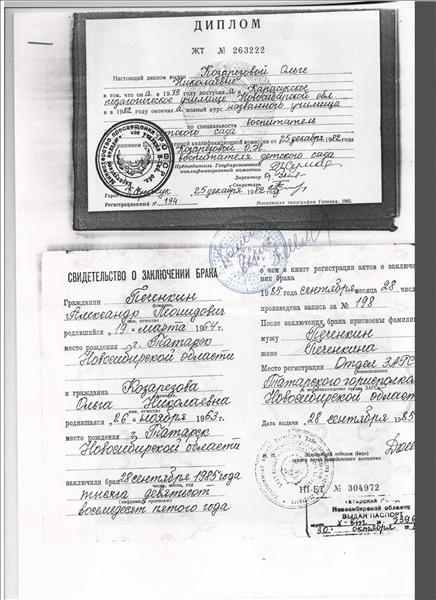 ДИПЛОМ
ЖТ № 263222
Настоящий диплом выдан Козарезовой Ольге
Николаевне
в том, что он а в 1979 году поступил а в Карасукское
педагогическое училище Новосибирской обл.
и в 1982 году окончил а полный курс названного училища
по специальности воспитатель
детского сада
квалификационной комиссии от 25 декабря 1982
Козарезовой О.Н.
воспитателя детского сада
Председатель Государственной
квалификационной комиссии
Директор
Секретарь
25 декабря 1982
Регистрационный № 194
Московская типография Гознака.
СВИДЕТЕЛЬСТВО О ЗАКЛЮЧЕНИИ БРАКА
Гражданин Печенкин
Александр Леонидович
родившийся „19" марта 1964 г.
место рождения г. Татарск
Новосибирской области
и гражданка Козарезова
Ольга Николаевна
родившаяся „26" ноября 1963 г.
место рождения г. Татарск
Новосибирской области
заключили брак 28 сентября 1985 года
тысяча девятьсот
восемьдесят пятого года
о чем в книге регистрации актов о заключе-
нии брака
1985 года сентября месяца 28 числа
произведена запись за № 198
После заключения брака присвоены фамилии
мужу Печенкин
жене Печенкина
Место регистрации Отдел ЗАГС
Татарского горисполкома
Новосибирской области
Дата выдачи „28" сентября 1985
№ 304972
Новосибирской области
ВЫДАН ПАСПОРТ
30 октября